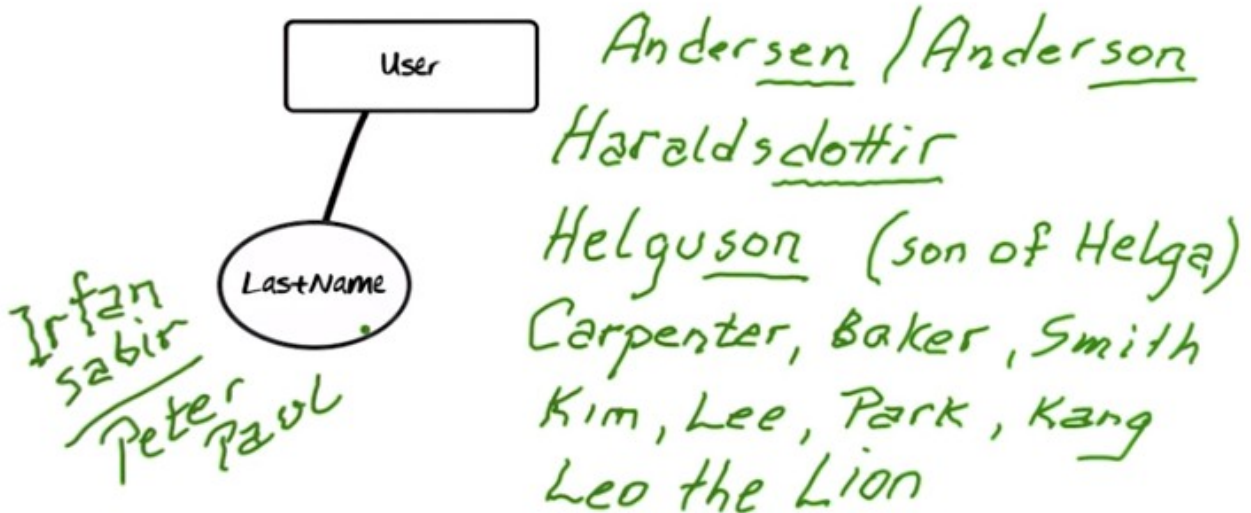 User
LastName
Irfan
sabir
Peter
Paul
Andersen / Anderson
Haraldsdottir
Helguson (son of Helga)
Carpenter, Baker, Smith
Kim, Lee, Park, Kang
Leo the Lion